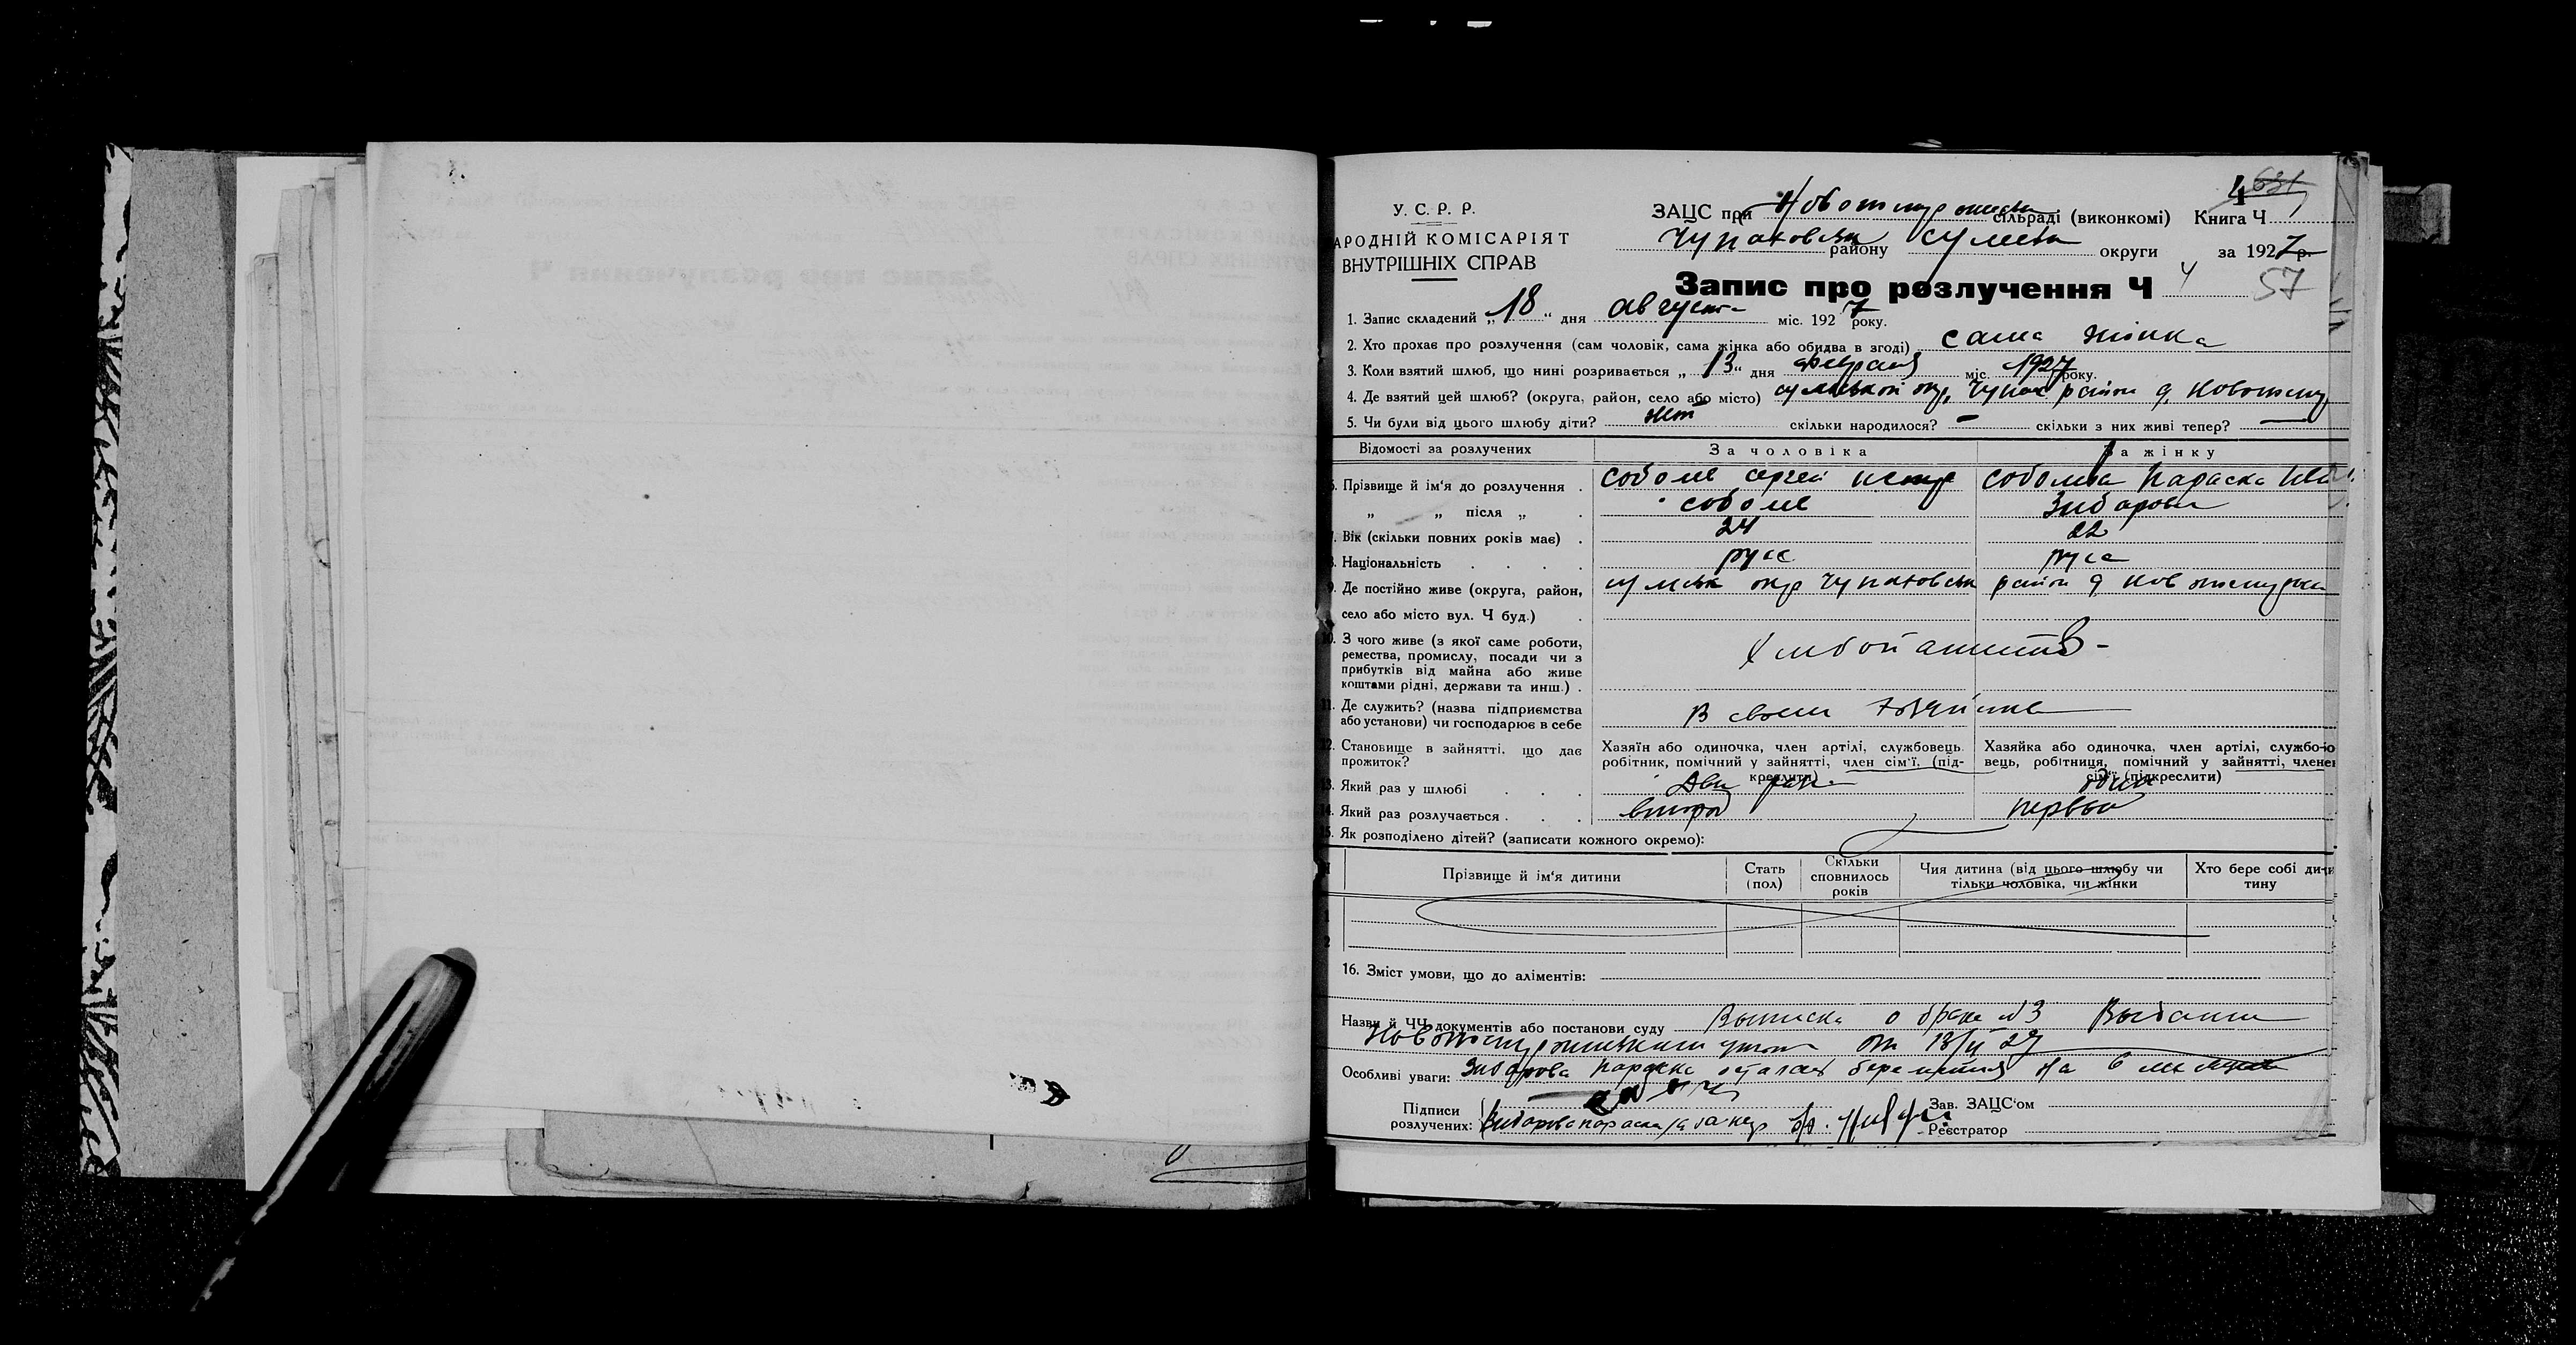 4 631
У. С. Р. Р.
АРОДНІЙ КОМІСАРІЯТ
ВНУТРІШНІХ СПРАВ
ЗАЦС при сільраді (виконкомі) Книга Ч
Чупаховськ району округи за 1927 р.
Запис про розлучення Ч 4 57
1. Запис складений „18“ дня августа міс. 1927 року.
2. Хто прохає про розлучення (сам чоловік, сама жінка або обидва в згоді) сама жінка
3. Коли взятий шлюб, що нині розривається „13“ дня февраля міс. 1927 року.
4. Де взятий цей шлюб? (округа, район, село або місто) сумської окр. Чупах район д
5. Чи були від цього шлюбу діти? нет скільки народилося? — скільки з них живі тепер? —
Відомості за розлучених За чоловіка За жінку
6. Прізвище й ім'я до розлучення . Соболев Сергей Соболева Параска Ива
„ „ після „ . Соболев Зибарова
7. Вік (скільки повних років має) . 24 22
8. Національність . . . . русс русс
9. Де постійно живе (округа, район, сумськ окр Чупаховськ район д
село або місто вул. Ч буд.) .
10. З чого живе (з якої саме роботи,
ремества, промислу, посади чи з
прибутків від майна або живе
коштами рідні, держави та инш.) .
11. Де служить? (назва підприємства
або установи) чи господарює в себе
В своем
12. Становище в зайнятті, що дає прожиток?
Хазяїн або одиночка, член артілі, службовець робітник, помічний у зайнятті, член сім'ї, (підкреслити)
Хазяйка або одиночка, член артілі, службовець, робітниця, помічний у зайнятті, член сім'ї (підкреслити)
13. Який раз у шлюбі . . . Два раза один
14. Який раз розлучається . . . второй первый
15. Як розподілено дітей? (записати кожного окремо):
Прізвище й ім'я дитини Стать (пол) Скільки сповнилось років Чия дитина (від цього шлюбу чи тільки чоловіка, чи жінки Хто бере собі дитину
1
2
16. Зміст умови, що до аліментів:
Назви й ЧЧ документів або постанови суду Выписка о браке №3
от 13/II 27
Особливі уваги: Зибарова Параска осталась беременная на 6 м
Підписи
розлучених: Зибарова Параска
Зав. ЗАЦС'ом
Реєстратор